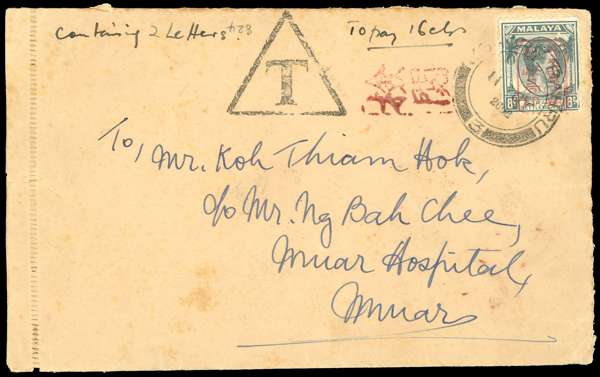 Containing 2 Letters. 824
To pay 16 cts
T
MALAYA
8c 8c
11
To,
Mr. Koh Thiam Hok,
c/o Mr. Ng Bah Chee,
Muar Hospital,
Muar